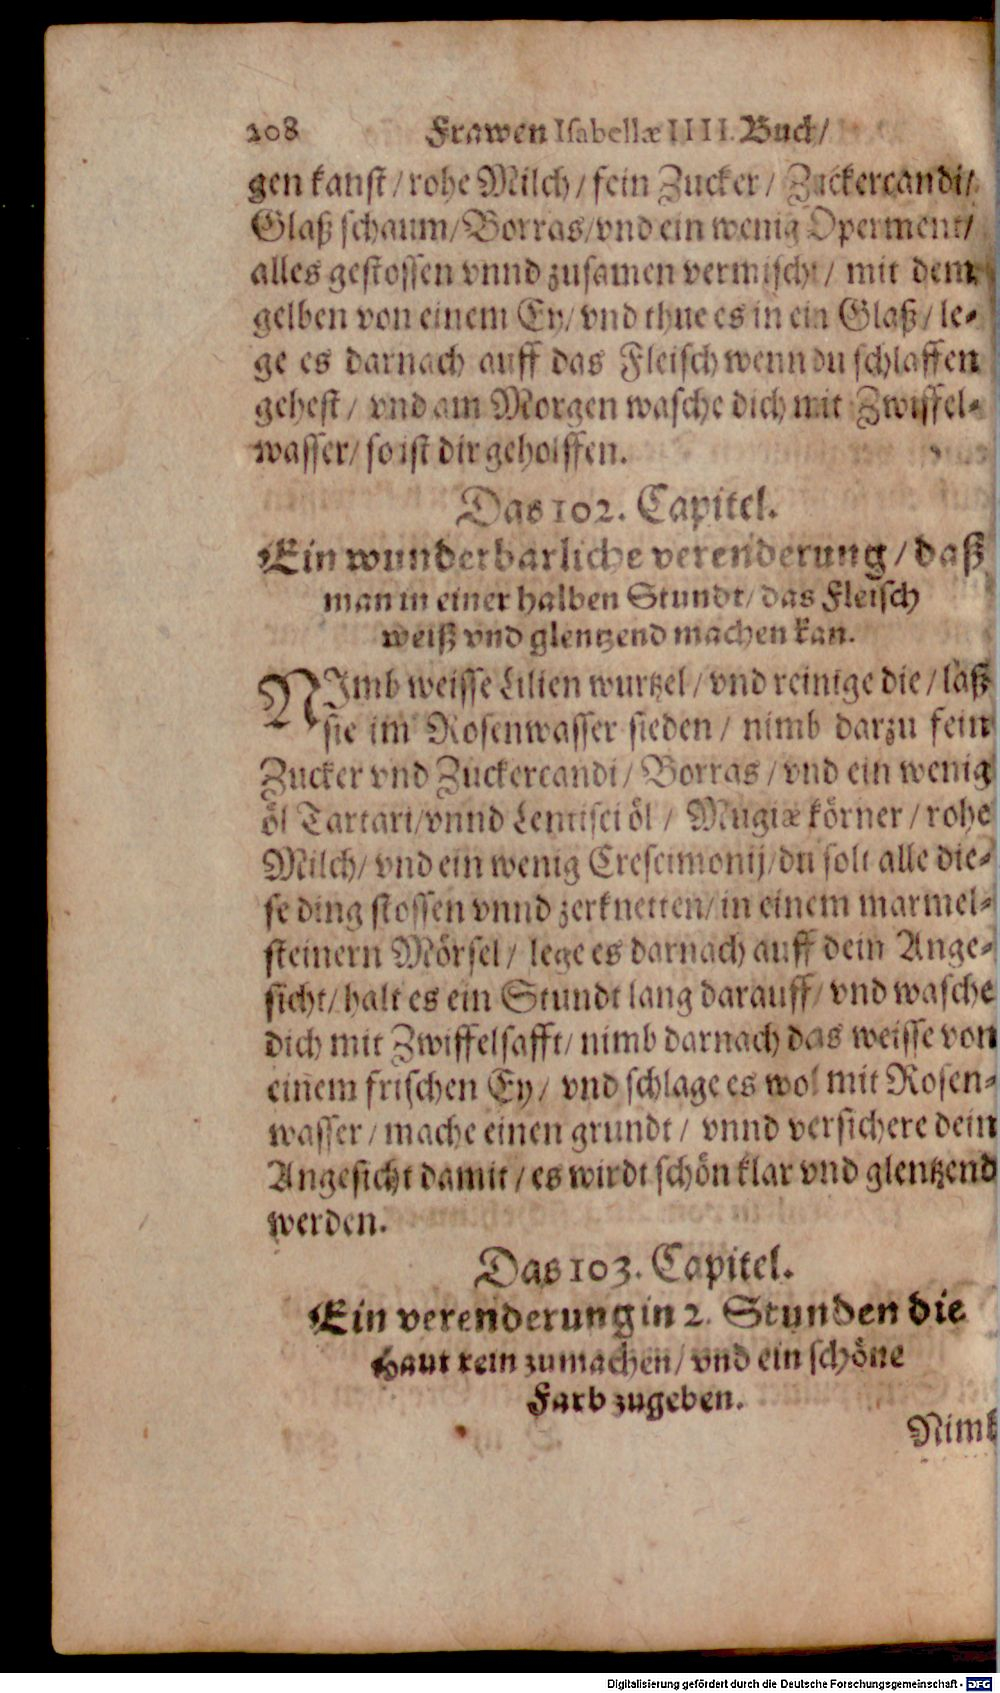 208 Frawen Isabellæ IIII. Buch/
gen kanst/rohe Milch/fein Zucker/ Zuckercandi/
Glaß schaum/Borras/vnd ein wenig Operment/
alles gestossen vnnd zusamen vermischt/ mit dem
gelben von einem Ey/ vnd thue es in ein Glaß/le-
ge es darnach auff das Fleisch wenn du schlaffen
gehest/ vnd am Morgen wasche dich mit Zwiffel-
wasser/ so ist dir geholffen.
Das 102. Capitel.
Ein wunderbarliche verenderung/daß
man in einer halben Stundt/das Fleisch
weiß vnd glentzend machen kan.
NImb weisse Lilien wurtzel/vnd reinige die/laß
sie im Rosenwasser sieden/ nimb darzu fein
Zucker vnd Zuckercandi/Borras/vnd ein wenig
öl Tartari/vnnd Lentisci öl/ Mugiæ körner/rohe
Milch/vnd ein wenig Crescimonij/du solt alle die-
se ding stossen vnnd zerknetten/in einem marmel-
steinern Mörsel/ lege es darnach auff dein Ange-
sicht/halt es ein Stundt lang darauff/vnd wasche
dich mit Zwiffelsafft/nimb darnach das weisse von
einem frischen Ey/ vnd schlage es wol mit Rosen-
wasser/mache einen grundt/ vnnd versichere dein
Angesicht damit/es wirdt schön klar vnd glentzend
werden.
Das 103. Capitel.
Ein verenderung in 2. Stunden die
Haut rein zumachen/vnd ein schöne
Farb zugeben.
Nimb
Digitalisierung gefördert durch die Deutsche Forschungsgemeinschaft - DFG